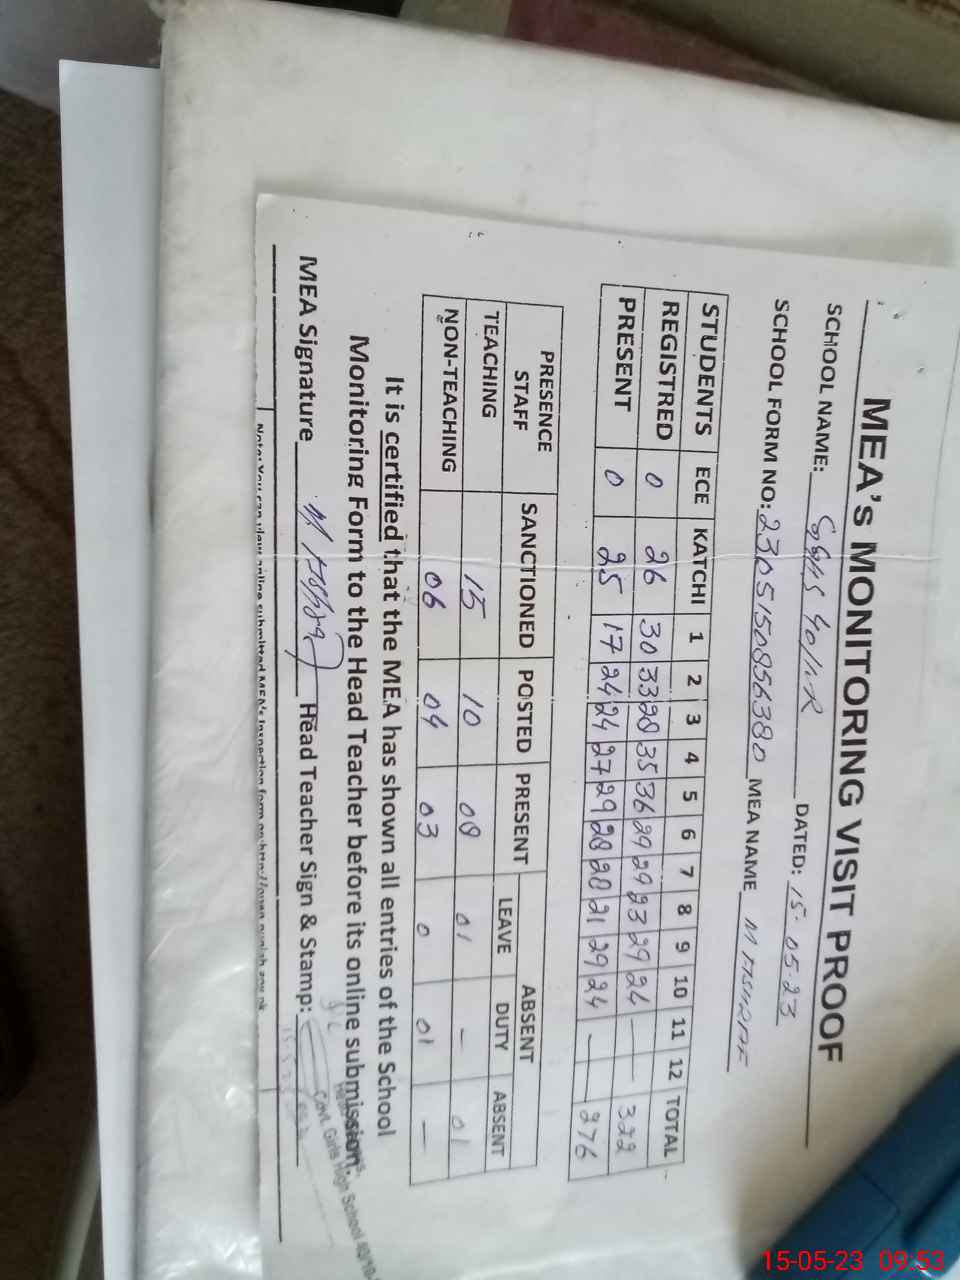 MEA's MONITORING VISIT PROOF
SCHOOL NAME: GGHS 40/12R DATED: 15.05.23
SCHOOL FORM NO: 2305150856380 MEA NAME M ASHRAF
STUDENTS ECE KATCHI 1 2 3 4 5 6 7 8 9 10 11 12 TOTAL
REGISTRED 0 26 30 33 28 35 36 29 29 23 29 24 — — 322
PRESENT 0 25 17 24 24 27 29 28 28 21 29 24 — — 276
PRESENCE STAFF SANCTIONED POSTED PRESENT ABSENT
LEAVE DUTY ABSENT
TEACHING 15 10 08 01 – 01
NON-TEACHING 06 04 03 0 01 —
It is certified that the MEA has shown all entries of the School
Monitoring Form to the Head Teacher before its online submission.
MEA Signature M Ashraf Head Teacher Sign & Stamp:
Govt. Girls High School
Note: You can view online submitted MEA's Inspection form on:
15-05-23 09:53